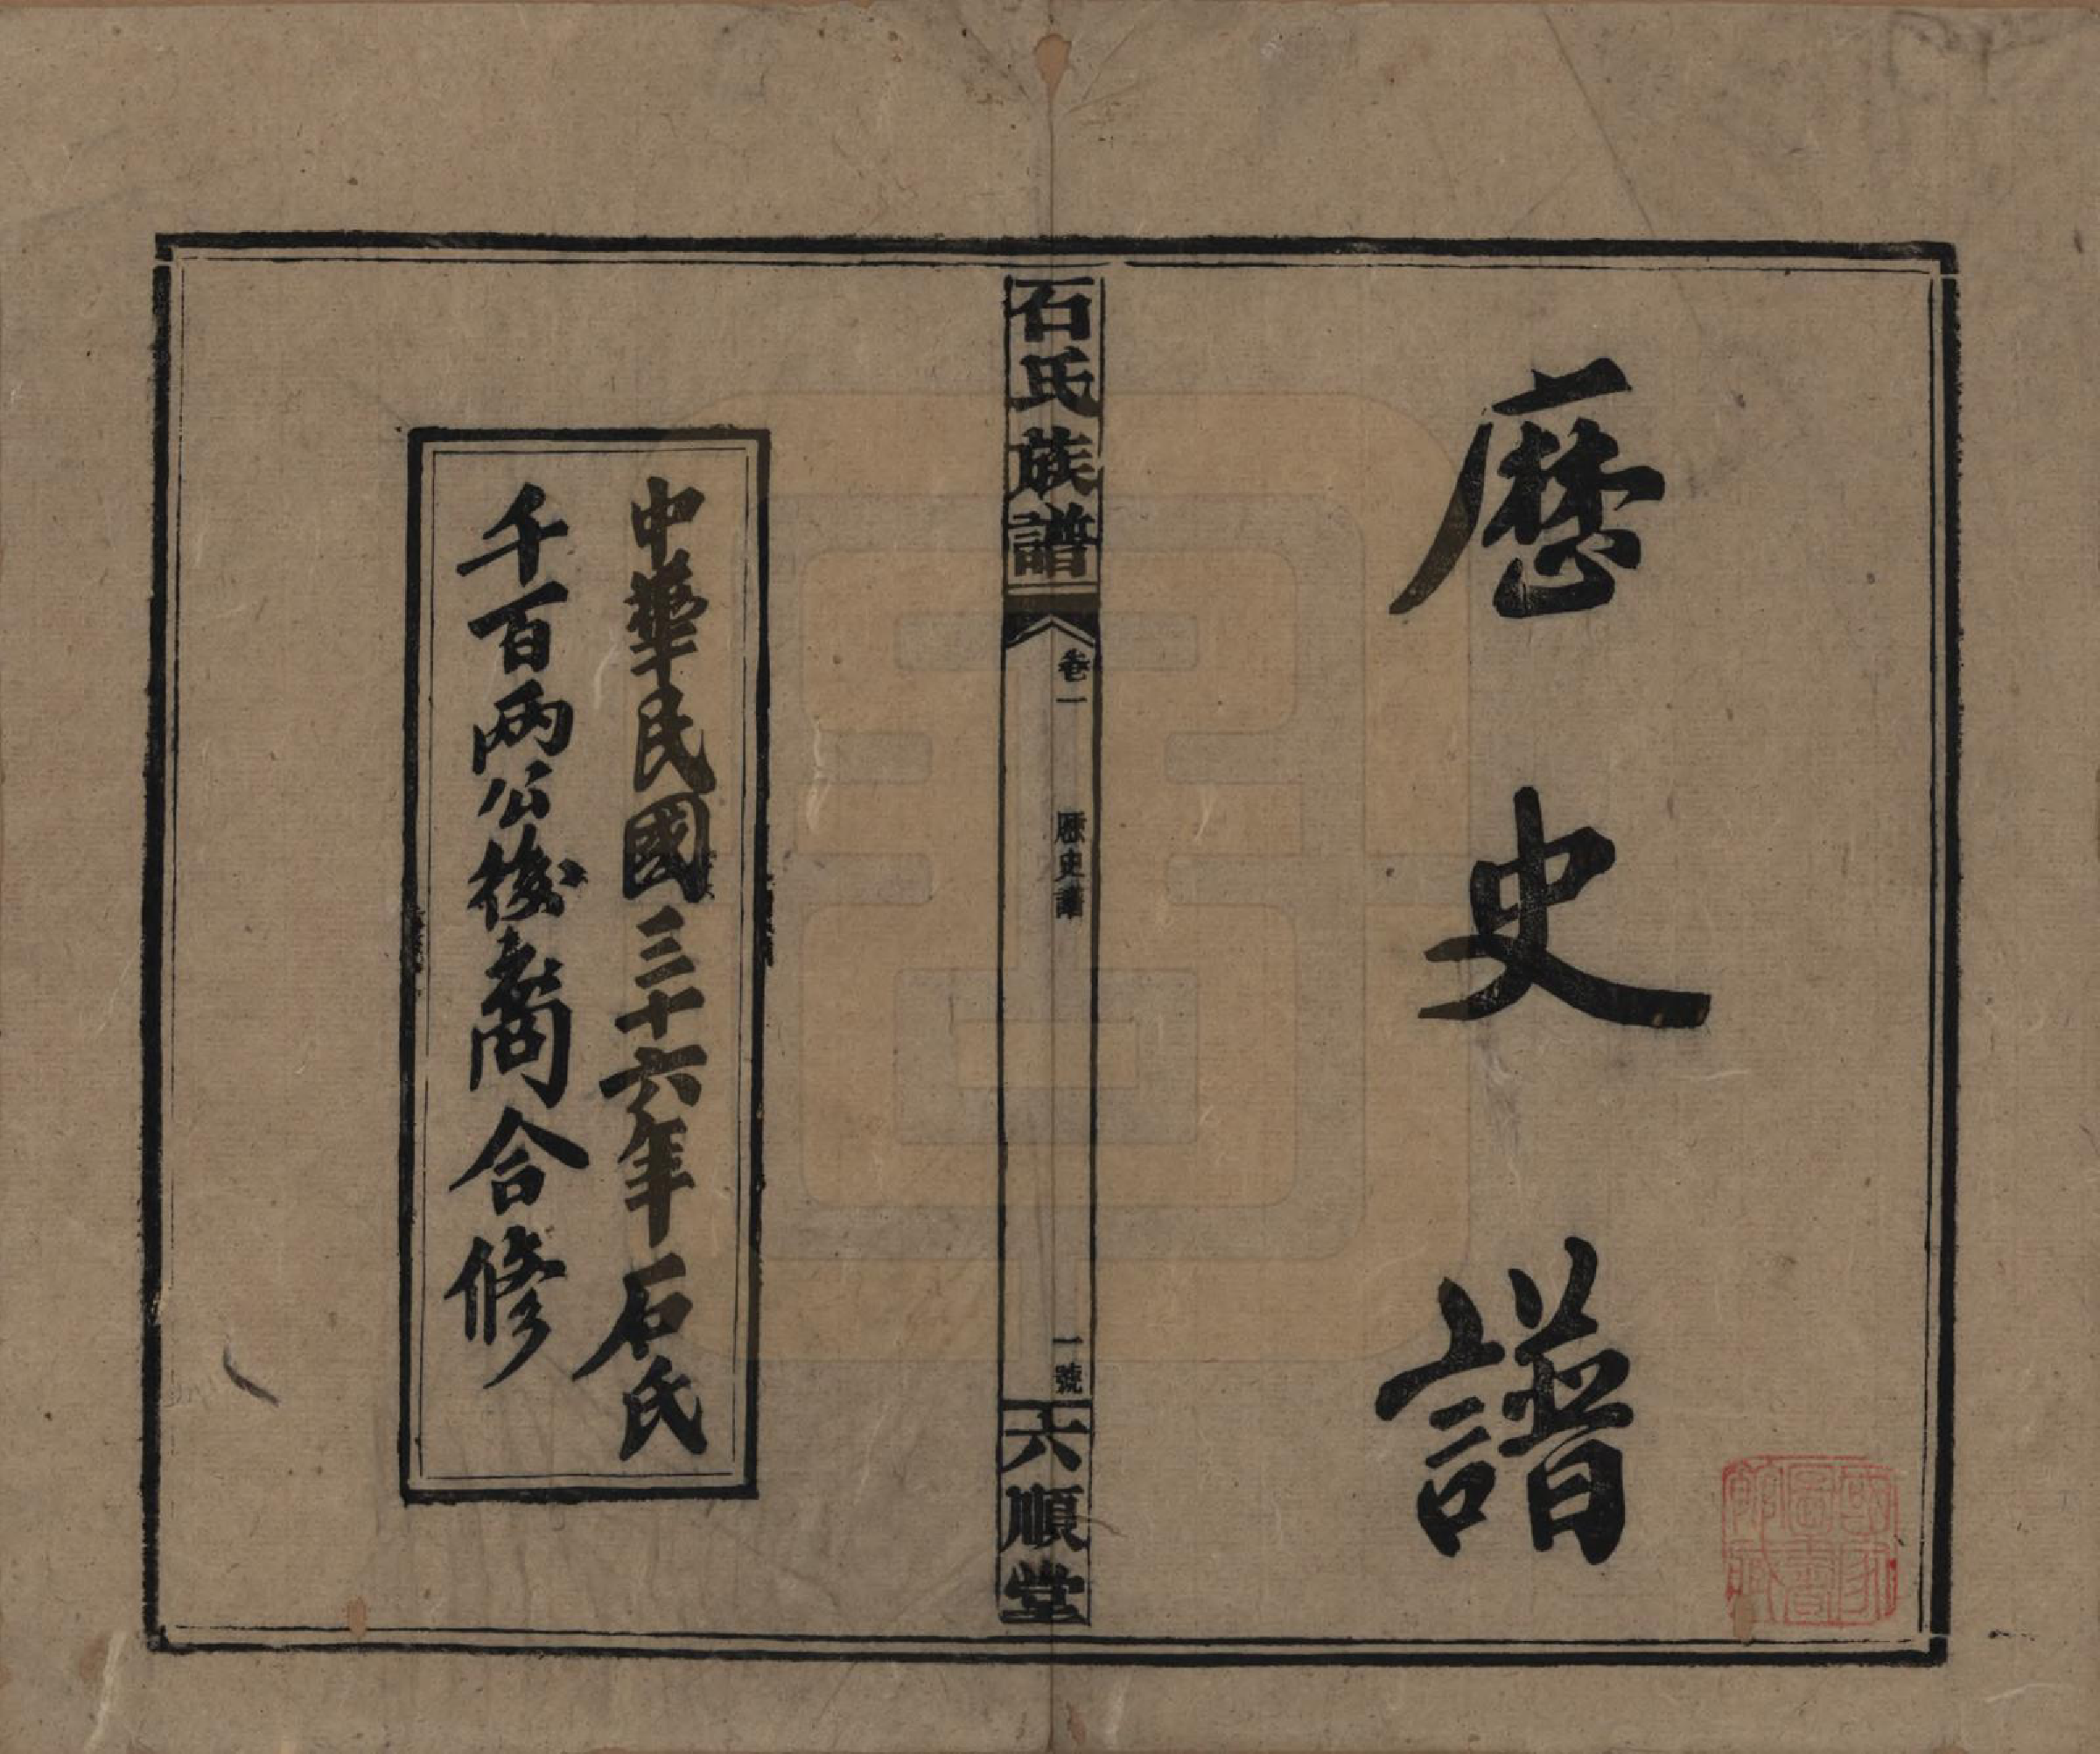 歷史譜
石氏族譜
卷一
歷史譜
一號
六順堂
中華民國三十六年石氏
千百兩公後裔合修
國家圖書館藏